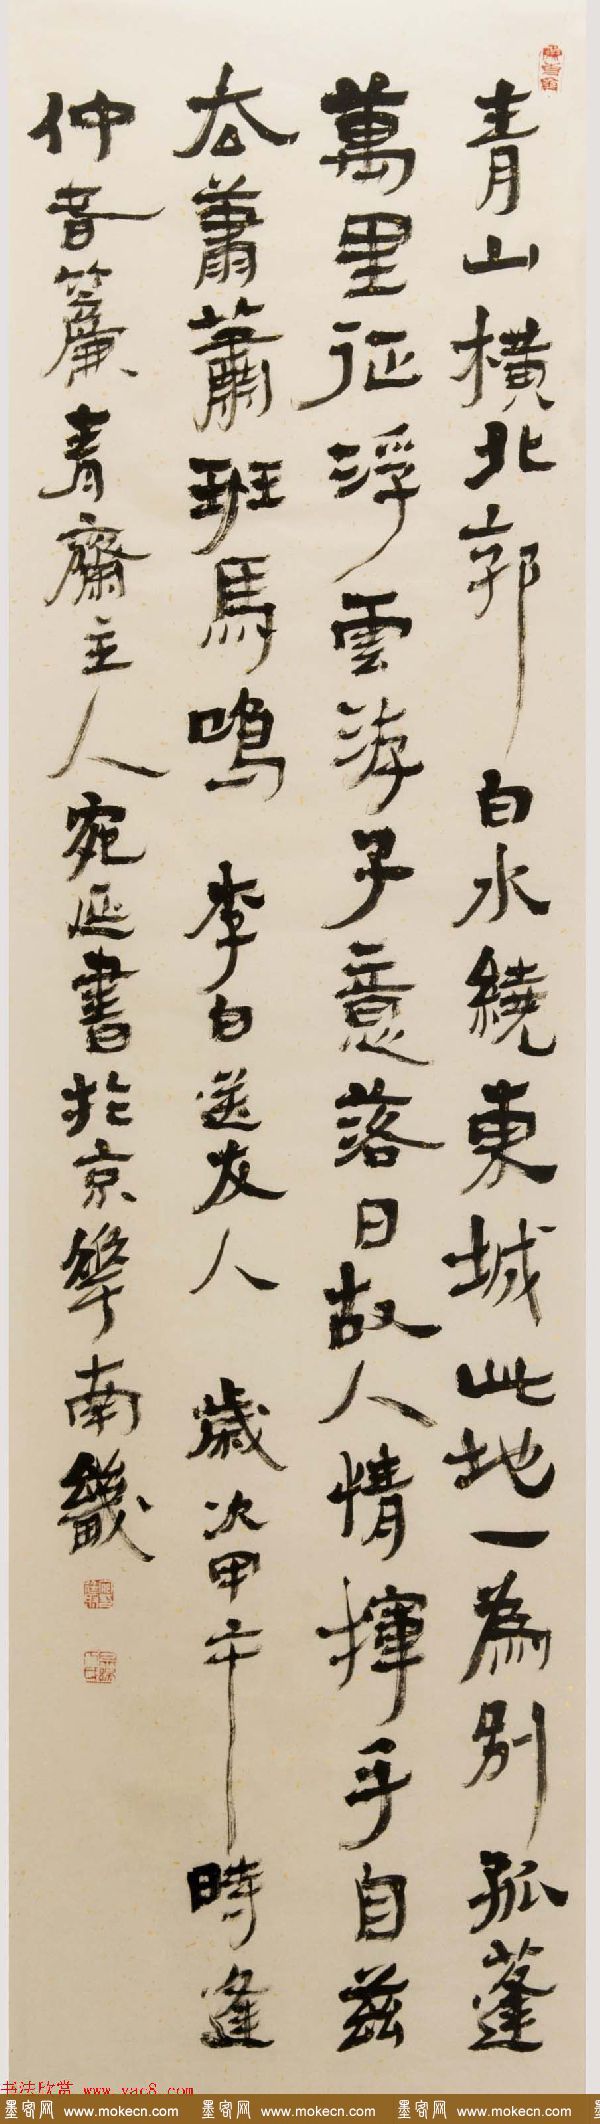 青山横北郭白水繞東城此地一為別孤蓬
萬里征浮雲游子意落日故人情揮手自茲
去蕭蕭班馬鳴 李白送友人 歲次甲午時逢
仲春簾青齋主人宛延書於京華南畿
书法欣赏 www.yac8.com
墨客网 www.mokecn.com 墨客网 www.mokecn.com 墨客网 www.mokecn.com